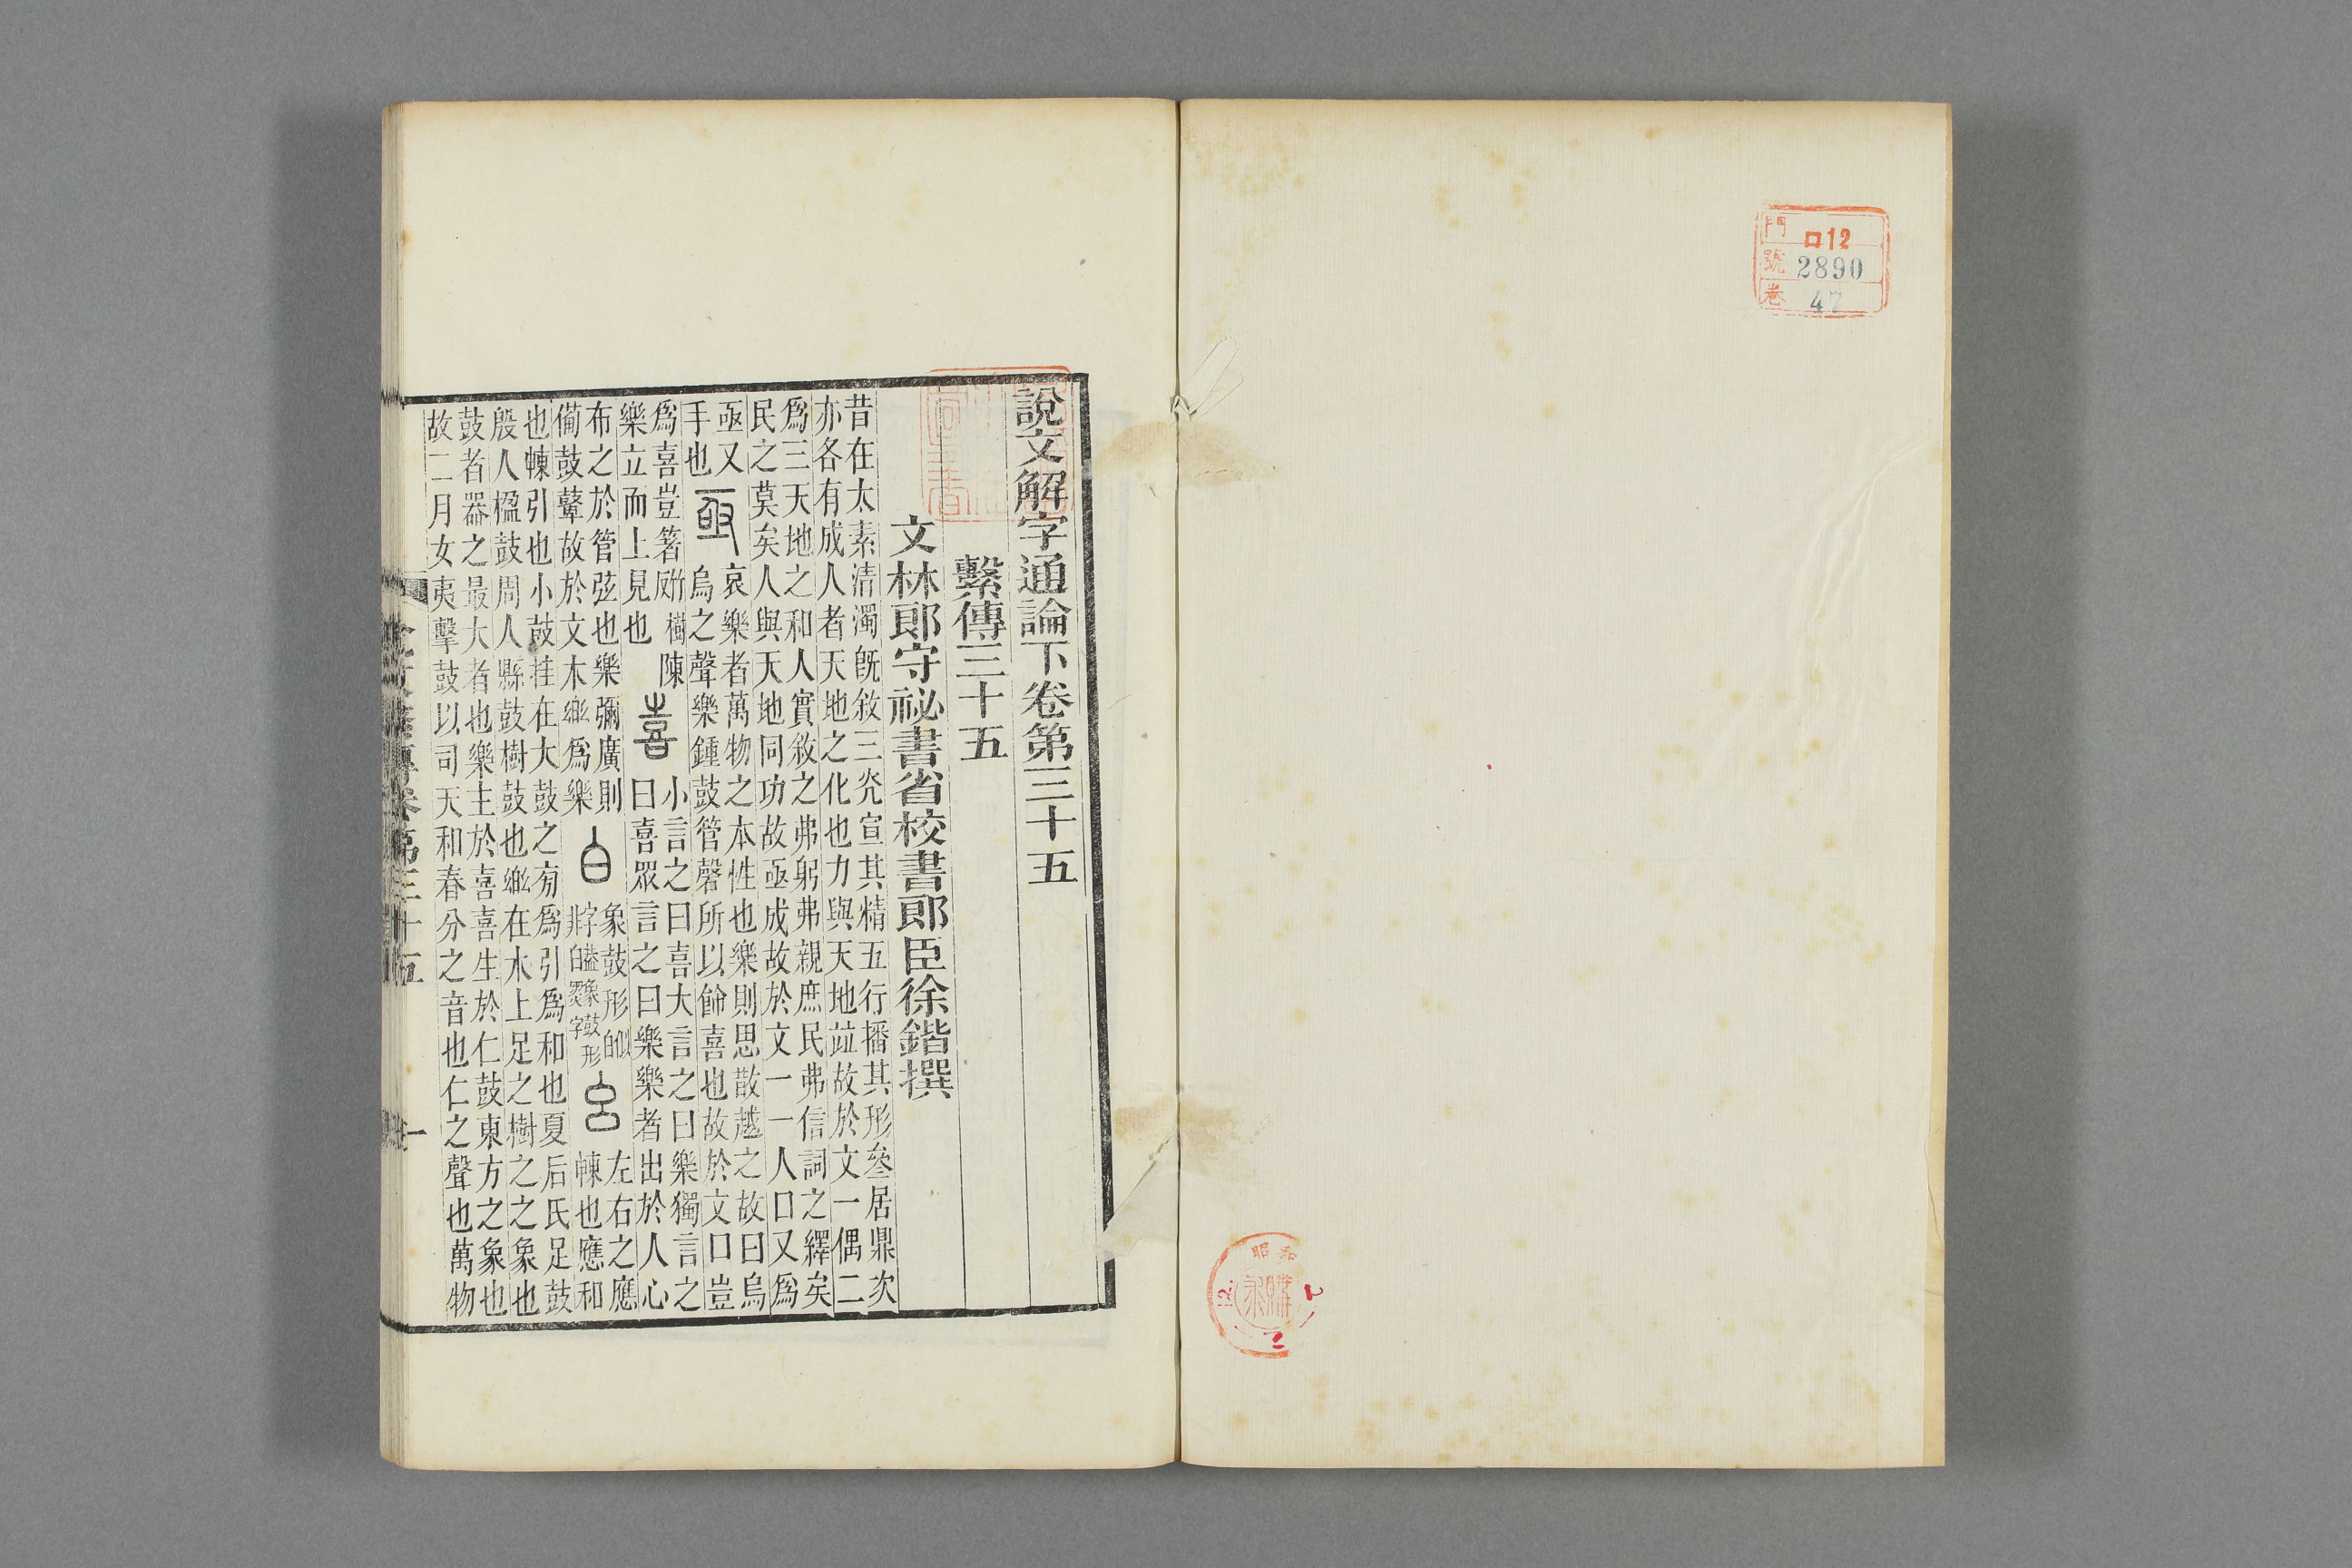 門 ロ12
號 2890
卷 47
昭和
說文解字通論下卷第三十五
繫傳三十五
文林郎守祕書省校書郎臣徐鍇撰
昔在太素清濁旣敘三灮宣其精五行播其形叄居鼎次
亦各有成人者天地之化也力與天地竝故於文一偶二
爲三天地之和人實敘之弗躬弗親庶民弗信詞之繹矣
民之莫矣人與天地同功故亟成故於文一一人口又爲
亟又
手也
亟
哀樂者萬物之本性也樂則思散越之故曰烏
烏之聲樂鍾鼓管磬所以飾喜也故於文口豈
爲喜豈箸樹陳
樂立而上見也
喜
小言之曰喜大言之曰樂獨言之
曰喜眾言之曰樂樂者出於人心
布之於管弦也樂彌廣則
僃鼓鼙故於文木𢆶爲樂
白
象鼓形
象鼓形
左右之應
㯥也應和
也㯥引也小鼓挂在大鼓之旁爲引爲和也夏后氏足鼓
殷人楹鼓周人縣鼓樹鼓也在木上足之樹之之象也
鼓者器之最大者也樂主於喜喜生於仁鼓東方之象也
故二月女夷擊鼓以司天和春分之音也仁之聲也萬物
傳卷第三十五
一